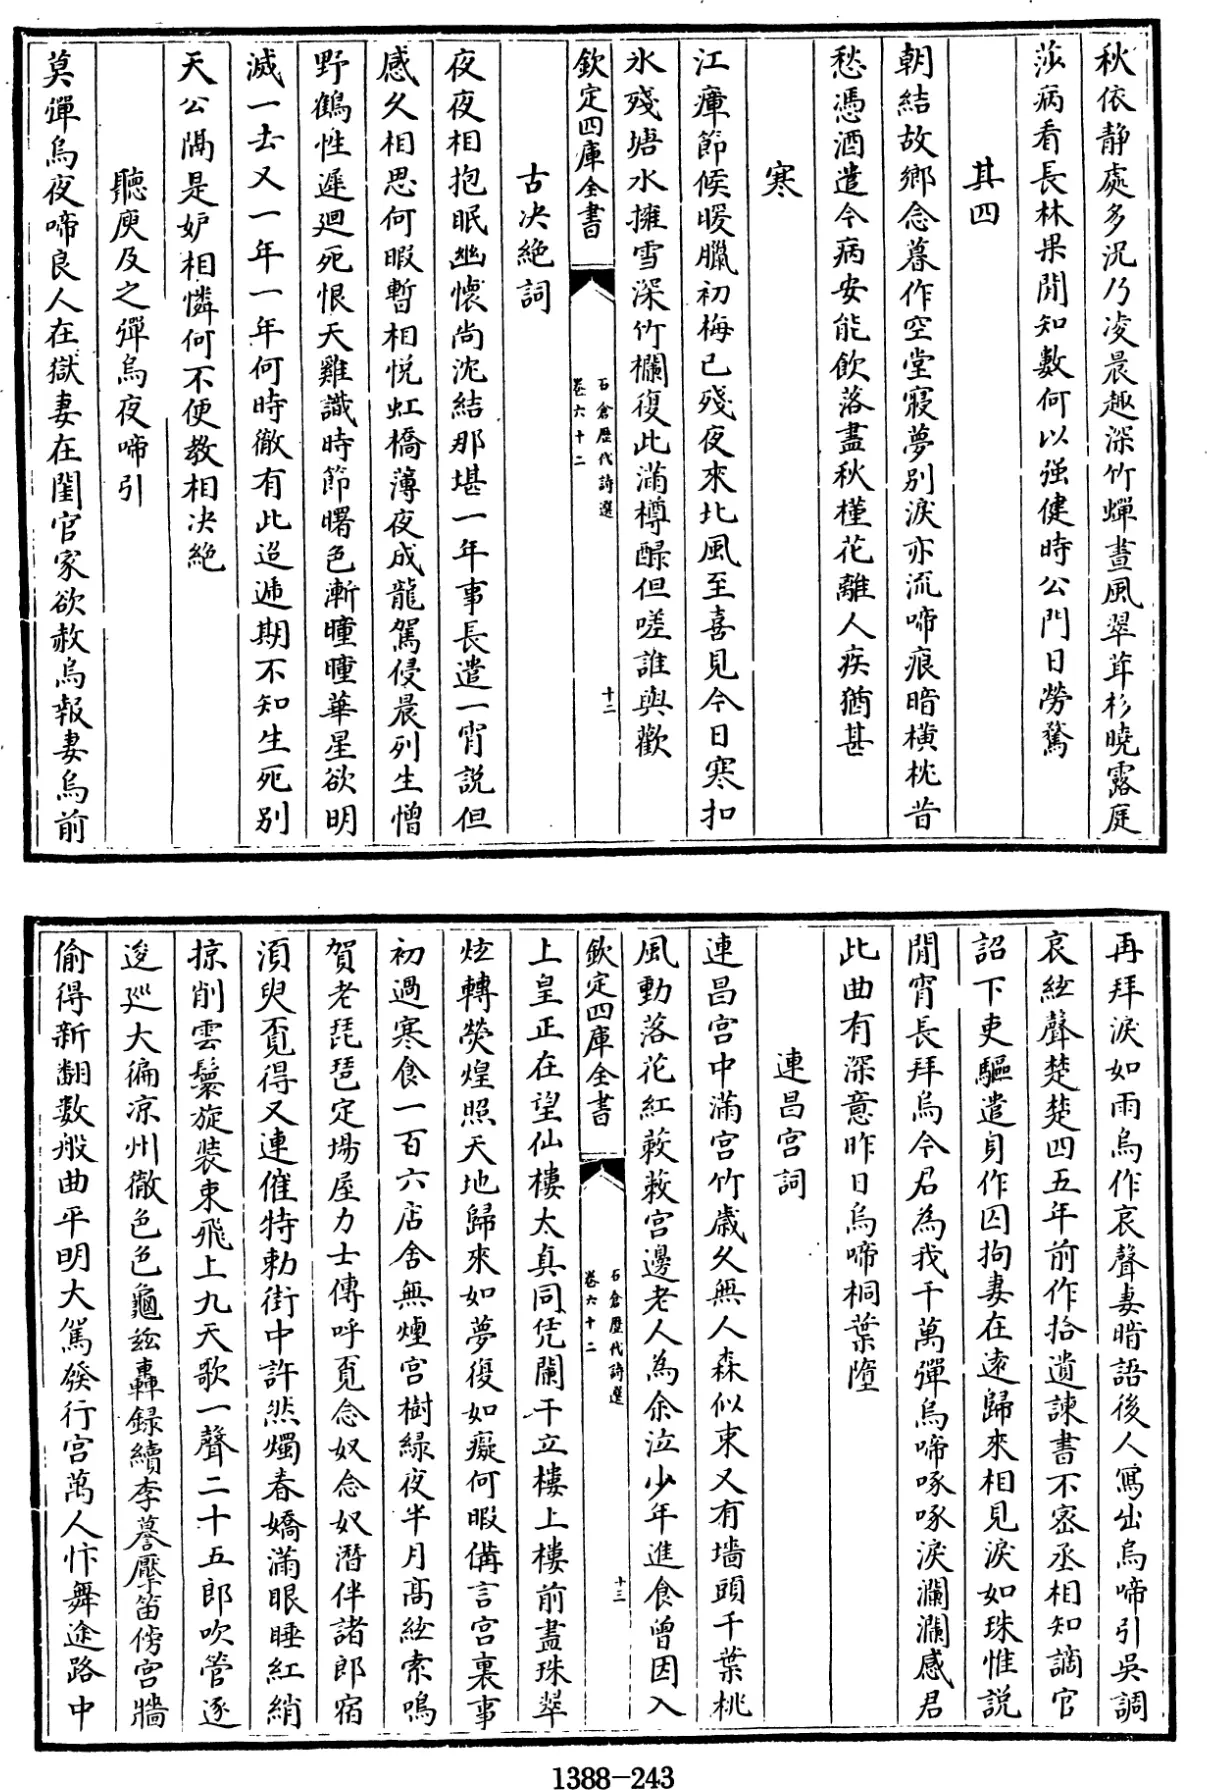 秋依静處多況乃凌晨趣深竹蟬晝風翠茸杉曉露庭
莎病看長林果閒知數何以强健時公門日勞騖
其四
朝結故鄉念暮作空堂寢夢別淚亦流啼痕暗橫枕昔
愁憑酒遣今病安能飲落盡秋槿花離人疾猶甚
寒
江瘴節候暖臘初梅已殘夜來北風至喜見今日寒扣
氷殘塘水擁雪深竹欄復此滿樽醁但嗟誰與歡
欽定四庫全書
石倉歷代詩選
卷六十二
十二
古决絶詞
夜夜相抱眠幽懷尚沈結那堪一年事長遣一宵説但
感久相思何暇暫相悦虹橋薄夜成龍駕侵晨列生憎
野鶴性遲迴死恨天雞識時節曙色漸曈曈華星欲明
滅一去又一年一年何時徹有此迢遞期不知生死别
天公隔是妒相憐何不便教相决絶
聽庾及之彈烏夜啼引
莫彈烏夜啼良人在獄妻在閨官家欲赦烏報妻烏前
再拜淚如雨烏作哀聲妻暗語後人寫出烏啼引吳調
哀絃聲楚楚四五年前作拾遺諫書不密丞相知謫官
詔下吏驅遣身作囚拘妻在逺歸來相見淚如珠惟説
閒宵長拜烏今君為我千萬彈烏啼啄啄淚瀾瀾感君
此曲有深意昨日烏啼桐葉墮
連昌宫詞
連昌宫中滿宫竹歲久無人森似束又有墻頭千葉桃
風動落花紅蔌蔌宫邊老人為余泣少年進食曾因入
欽定四庫全書
石倉歷代詩選
卷六十二
十三
上皇正在望仙樓太真同凭闌干立樓上樓前盡珠翠
炫轉熒煌照天地歸來如夢復如癡何暇備言宫裏事
初過寒食一百六店舍無煙宫樹緑夜半月髙絃索鳴
賀老琵琶定場屋力士傳呼覓念奴念奴潛伴諸郎宿
須臾覓得又連催特勑街中許然燭春嬌滿眼睡紅綃
掠削雲鬟旋裝束飛上九天歌一聲二十五郎吹管逐
逡巡大徧凉州徹色色龜兹轟録續李謩擪笛傍宫牆
偷得新翻數般曲平明大駕發行宫萬人忭舞途路中
1388-243